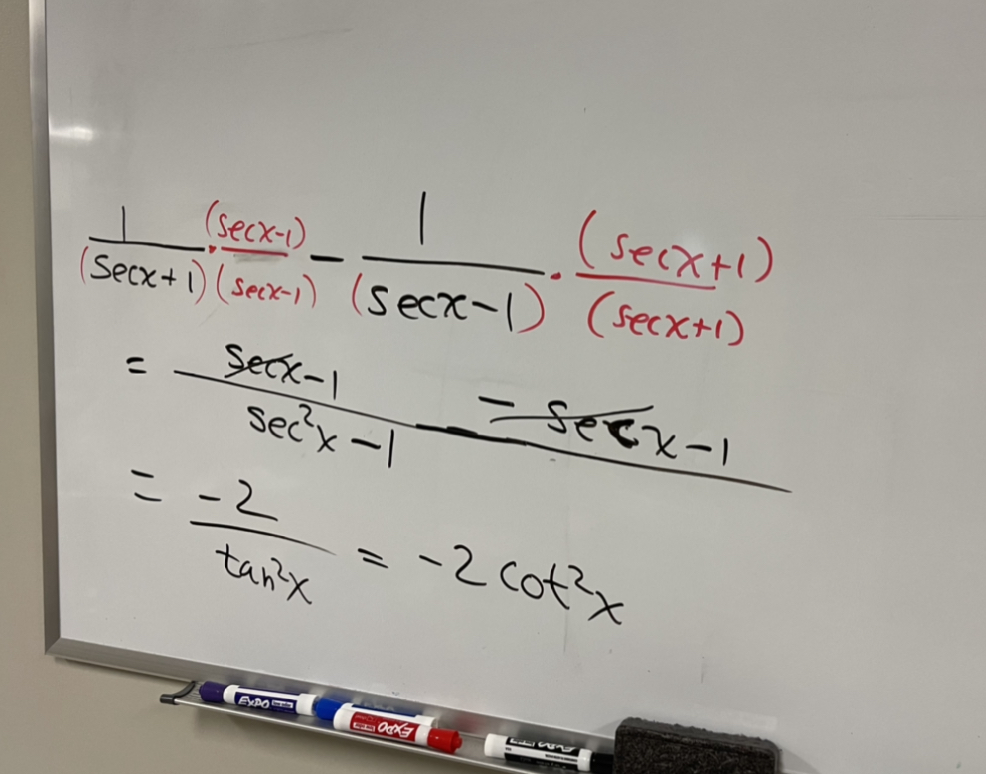 1/(secx+1) · (secx-1)/(secx-1) - 1/(secx-1) · (secx+1)/(secx+1)
= (secx-1 - secx-1)/(sec²x-1)
= -2/tan²x = -2cot²x
EXPO
EXPO
EXPO